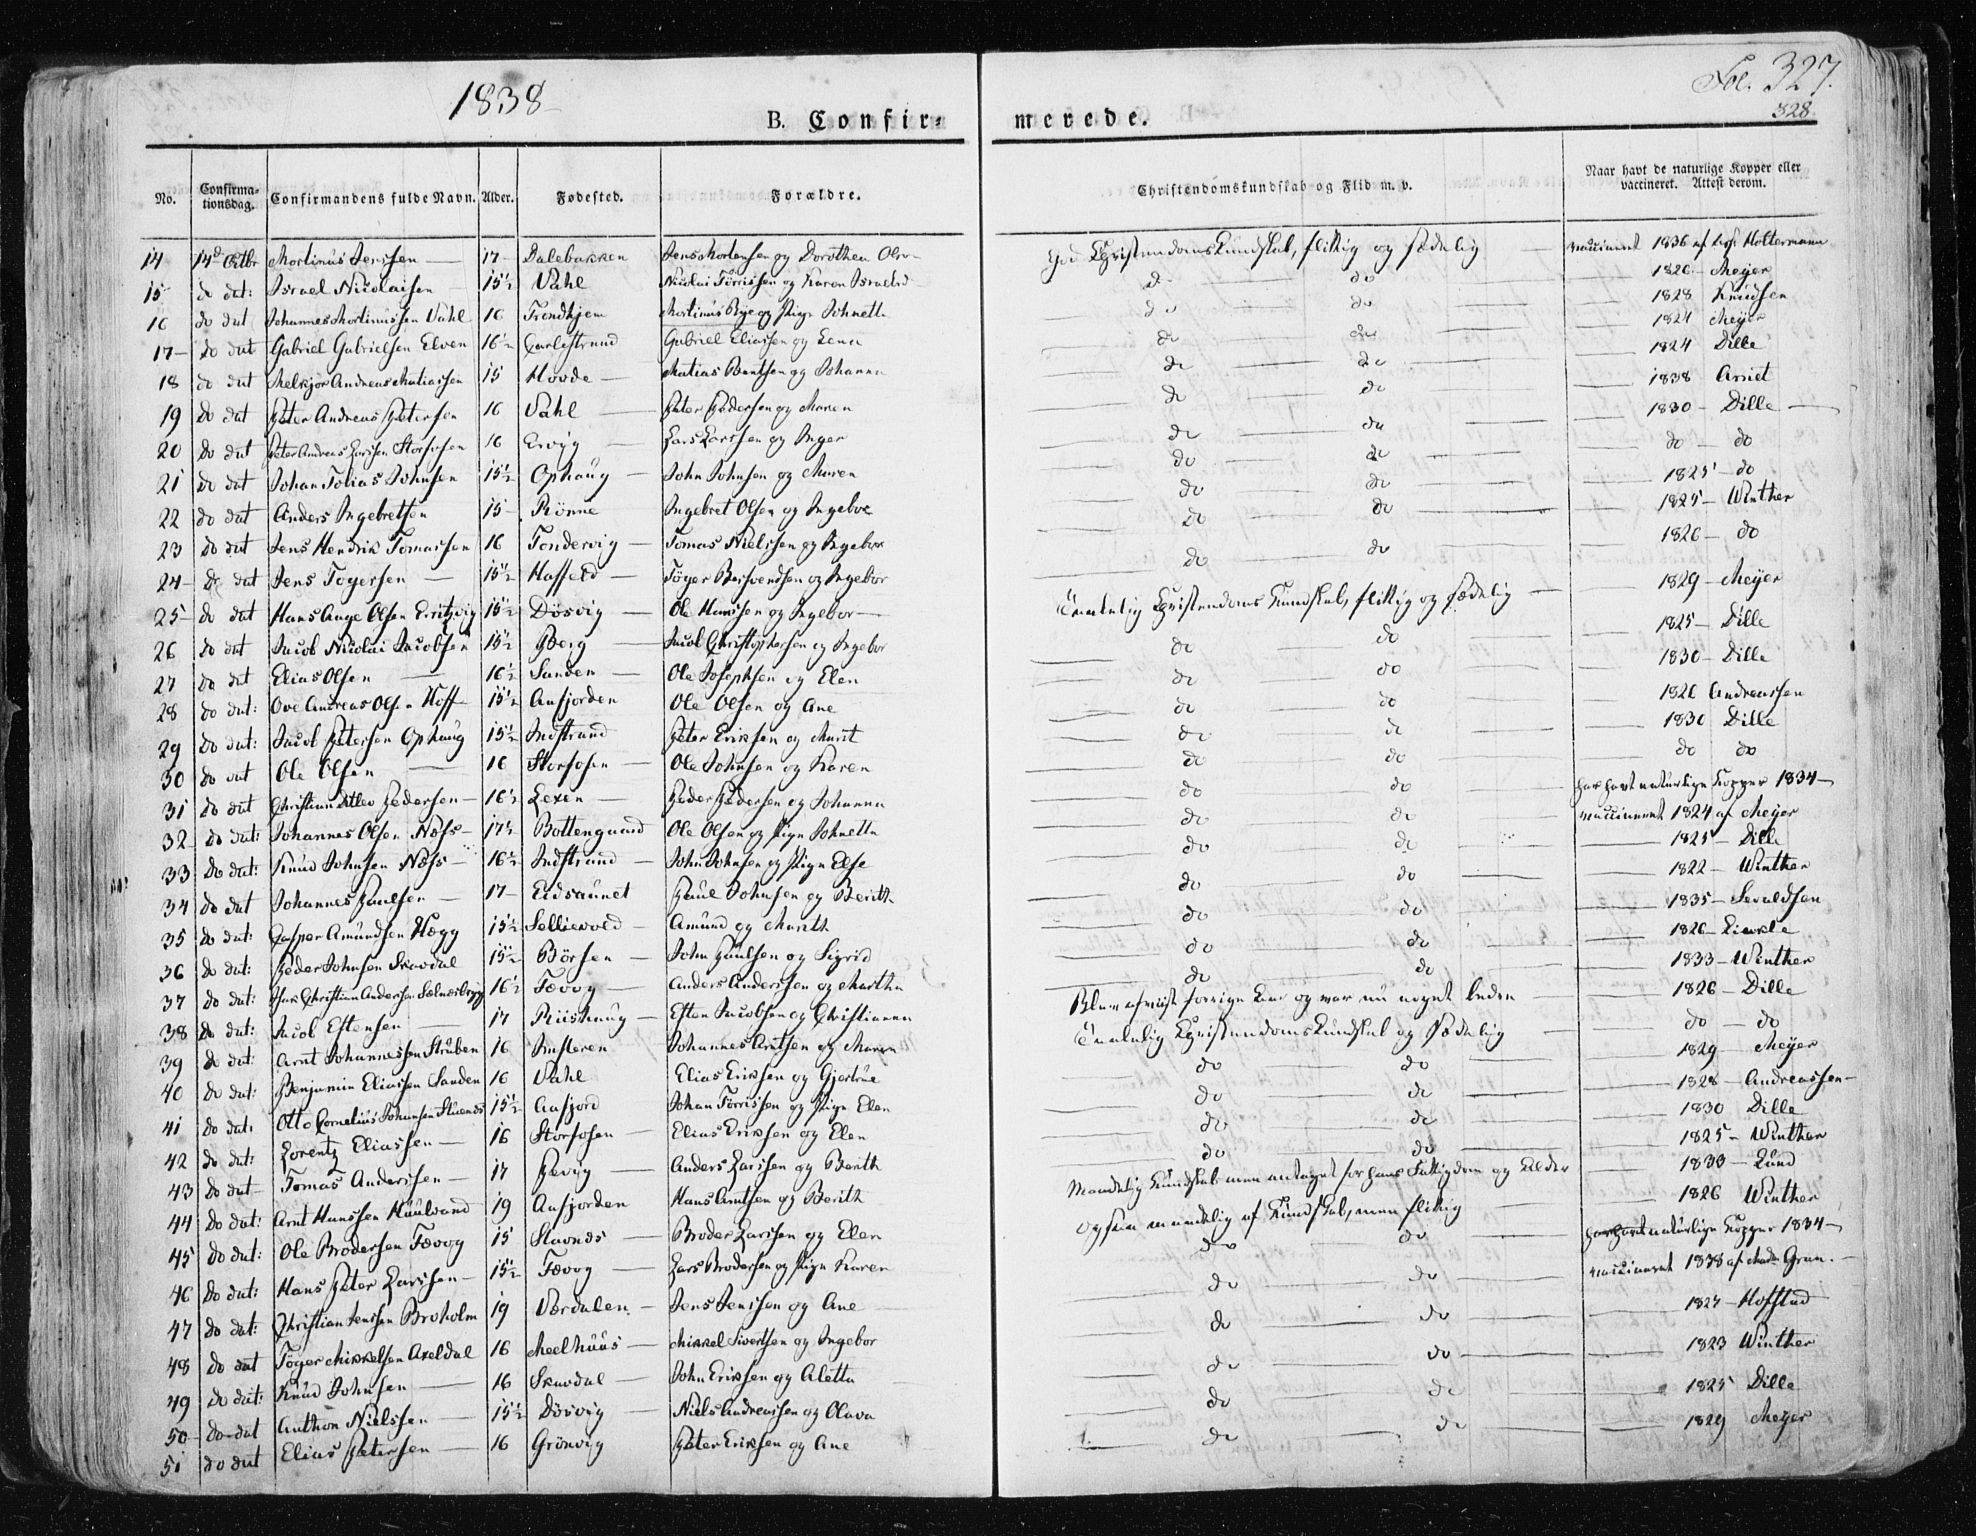 1838
Fol. 327.
328
B. Confir=
merede.
No. Confirma-tionsdag. Confirmandens fulde Navn. Alder. Fødested. Forældre. Christendomskundskab og Flid m. v. Naar havt de naturlige Kopper eller vaccineret. Attest derom.
14 14d Octbr Mortinus Jenssen 17 Dalebakken Jens Mortensen og Dorothea Olsen God Christendomskundskab, flittig og sædelig vaccineret 1836 af Holtermann
15 do dat: Israel Nicolaisen 15½ Vahl Nicolai Tørrissen og Karen Israelsd do do 1826 Meyer
16 do dat Johannes Mortinussen Vahl 16 Trondhjem Mortinus Rye og Pige Johnetta do do 1828 Knudsen
17 do dat Gabriel Gabrielsen Elven 16½ Carlestrand Gabriel Eliassen og Lena do do 1824 Meyer
18 do dat Melkjor Andreas Matiassen 15 Hovde Matias Bentsen og Johanna do do 1824 Dille
19 do dat Peter Andreas Petersen 16 Vahl Peter Pedersen og Maren do do 1838
20 do dat Peter Andreas Larssen Storfosen 16 Ervig Lars Larssen og Inger do do 1830 Dille
21 do dat Johan Tobias Johnsen 15½ Ophaug John Johnsen og Maren do do do do
22 do dat Anders Ingebretsen 15 Rønne Ingebret Olsen og Ingebor do do 1825 do
23 do dat Jens Hendrik Tomassen 16 Tondervig Tomas Nielssen og Ingebor do do 1825 Winther
24 do dat Jens Togersen 15½ Hasseld Töger og Ingebor do do 1826 do
25 do dat Hans Ange Olsen 15½ Dösvig Ole Hanssen og Ingebor Temmelig Christendoms Kundskab, flittig og sædelig 1829 Meyer
26 do dat Jacob Nicolai Jacobsen 15½ Berg Jacob Christophersen og Ingebor do do 1825 Dille
27 do dat Elias Olsen 16½ Sanden Ole Josephsen og Elen do do 1830 Dille
28 do dat: Ove Andreas Olsen Hoff 15½ Aafjorden Ole Olsen og Ane do do 1826 Andreassen
29 do dat: Jacob Petersen Ophaug 15½ Indstrand Peter Eriksen og Marit do do 1830 Dille
30 do dat Ole Olsen 16 Storfosen Ole Johnsen og Karen do do do do
31 do dat Christian Ditlev Pedersen 16½ Lexen Peder Pedersen og Johanna do do har havt naturlige Kopper 1834
32 do dat: Johannes Olsen Næss 17½ Bottengaard Ole Olsen og Pige Johnetta do do vaccineret 1824 af Meyer
33 do dat: Knud Johnsen Næss 16½ Indstrand John Johnsen og Pige Else do do 1825 Dille
34 do dat Johannes Paulsen 17 Eidsaunet Paul Johnsen og Berith do do 1822 Winther
35 do dat: Casper Amundsen Hægg 15½ Sellievold Amund og Marith do do 1835 Sevaldsen
36 do dat: Peder Johnsen Skavdal 15½ Börsen John Paulsen og Sigrid do do 1826
37 do dat: Isak Christian Andersen Selnesberg 16½ Tævog Anders Anderssen og Martha do do 1833 Winther
38 do dat: Jacob Eftensen 17 Riishaug Eften Jacobsen og Christianna Blev afviist forrige Aar og var nu noget bedre 1826 Dille
39 do dat: Arnt Johannessen Struben 16 Johannes Arntsen og Maren Temmelig Christendomskundskab og sædelig do do
40 do dat: Benjamin Eliassen Sanden 16 Vahl Elias Eriksen og Gjertrue do do 1829 Meyer
41 do dat: Otto Cornelius Johansen 15½ Aafjord Johan Tørrissen og Pige Elen do do 1828 Andreassen
42 do dat: Lorentz Eliassen 16 Storfosen Elias Eriksen og Elen do do 1830 Dille
43 do dat Tomas Anderssen 17 Anders Larssen og Berith do do 1825 Winther
44 do dat: Arnt Hanssen Huulvand 19 Aafjorden Hans Arntsen og Berith Maadelig Kundskab men antaget for hans Fattigdom og Alder 1833 Lund
45 do dat: Ole Brodersen Tævog 15 Stavnes Broder Larssen og Elen Ogsaa maadelig af Kundskab, men flittig 1826 Winther
46 do dat: Hans Peter Larssen 15½ Tævog Lars Brodersen og Pige Karen do do har havt naturlige Kopper 1834
47 do dat: Christian Jenssen Broholm 19 Værdalen Jens Jenssen og Ane do do vaccineret 1838 af Gran.
48 do dat Töger Mikkelsen Axeldal 16 Meelhuus Mikkel Sivertsen og Ingebor do do 1827 Hofstad
49 do dat: Knud Johnsen 16 Skavdal John Eriksen og Aletta do do 1823 Winther
50 do dat Anthon Nielssen 15½ Dösvig Niels Andreassen og Olava do do 1825 Dille
51 do dat Elias Petersen 16 Grönvig Peter Eriksen og Ane do do 1829 Meyer